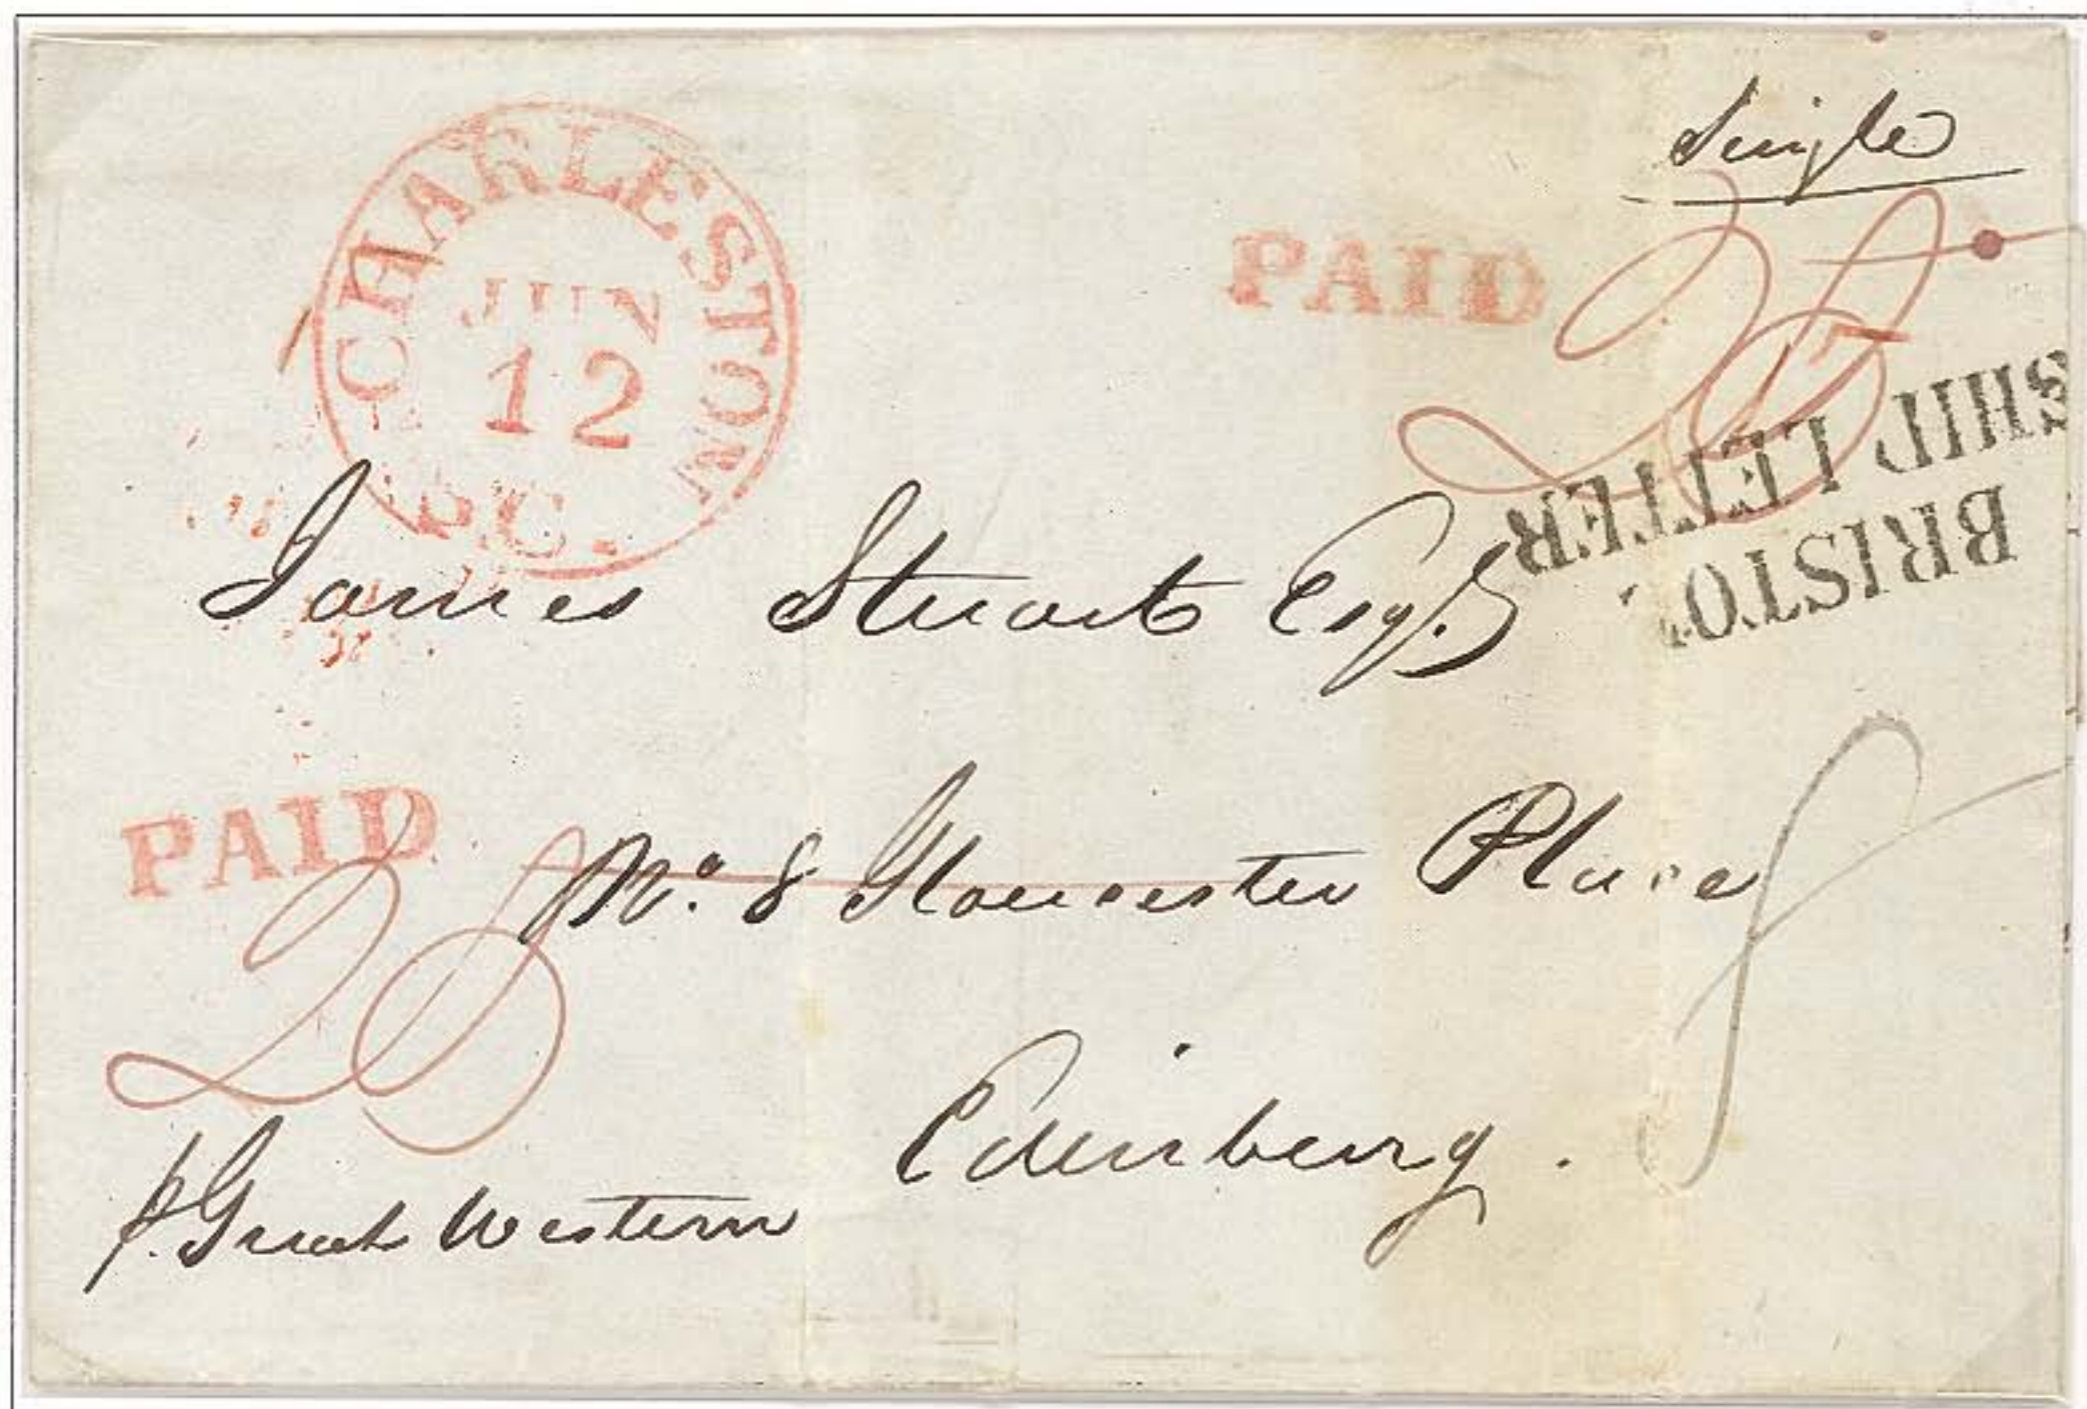 Single
CHARLESTON
JUN
12
S.C.
PAID
25
BRISTOL
SHIP LETTER
James Stuart Esqr
PAID
25
No. 8 Gloucester Place
8
Edinburg.
p. Great Western